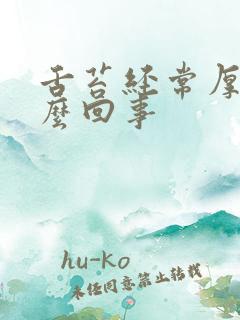 舌苔經常厚
麼回事
hu-ko
未经同意禁止转载